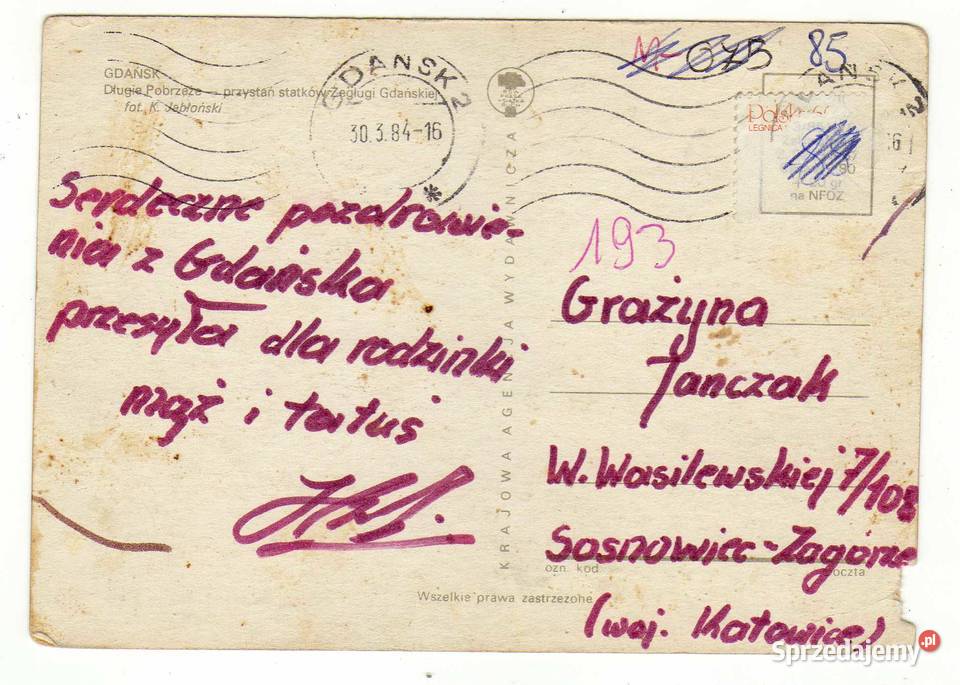 GDAŃSK
Długie Pobrzeże — przystań statków Żeglugi Gdańskiej
fot. K. Jabłoński
GDAŃSK 2
30.3.84-16
*
Serdeczne pozdrowie-
nia z Gdańska
przesyła dla rodzinki
mąż i tatuś
KRAJOWA AGENCJA WYDAWNICZA
Wszelkie prawa zastrzeżone
85
Polska
LEGNICA
na NFOZ
193
Grażyna
Janczak
W. Wasilewskiej 7/108
Sosnowiec-Zagórze
ozn. kod
poczta
(woj. Katowice)
Sprzedajemy.pl